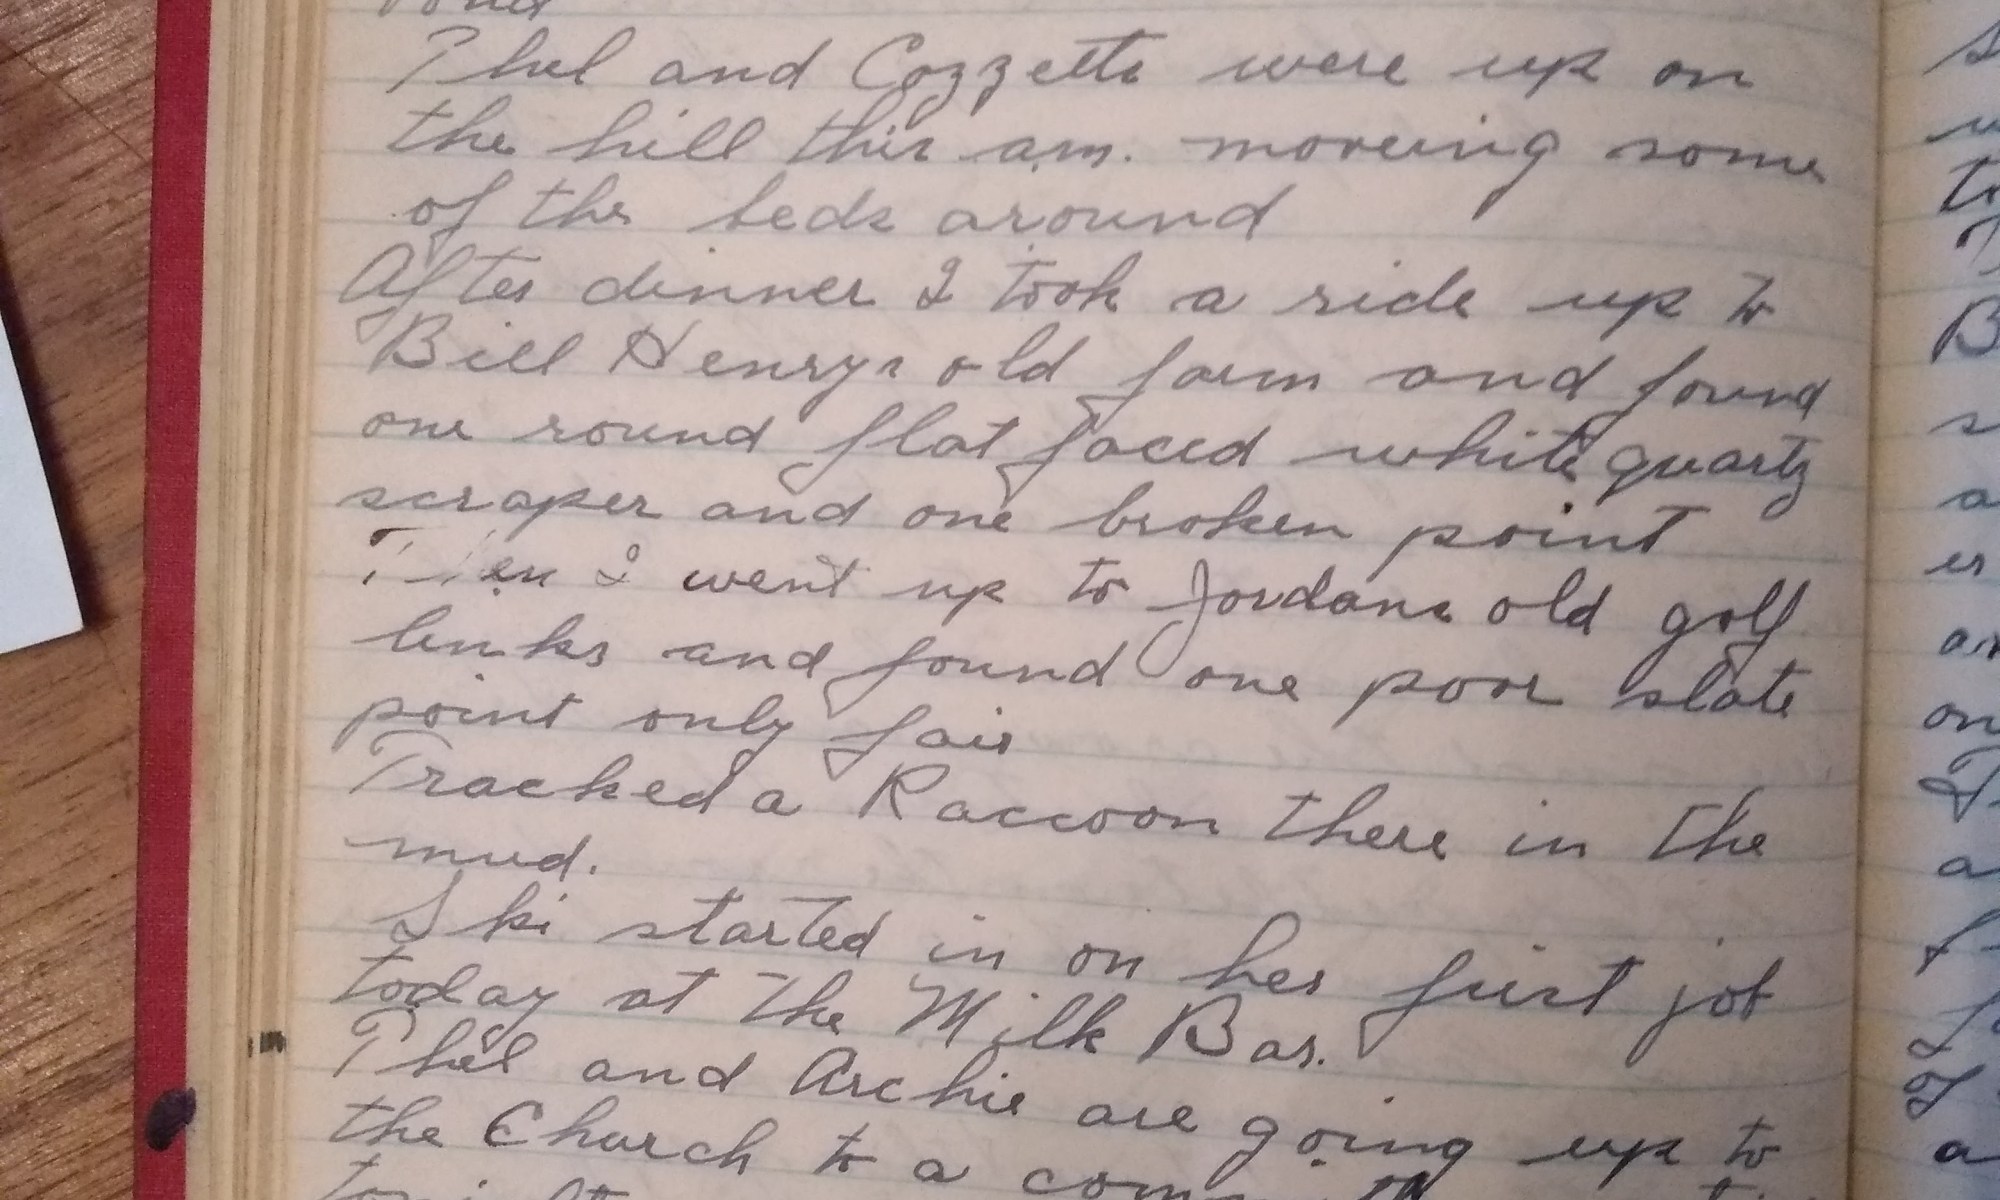 Phil and Cozzette were up on
the hill this a.m. moveing some
of the beds around
After dinner I took a ride up to
Bill Henrys old farm and found
one round flat faced white quartz
scraper and one broken point
Then I went up to Jordans old golf
links and found one poor slate
point only fair
Tracked a Raccoon there in the
mud.
Ski started in on her first job
today at the Milk Bar.
Phil and Archie are going up to
the Church to a